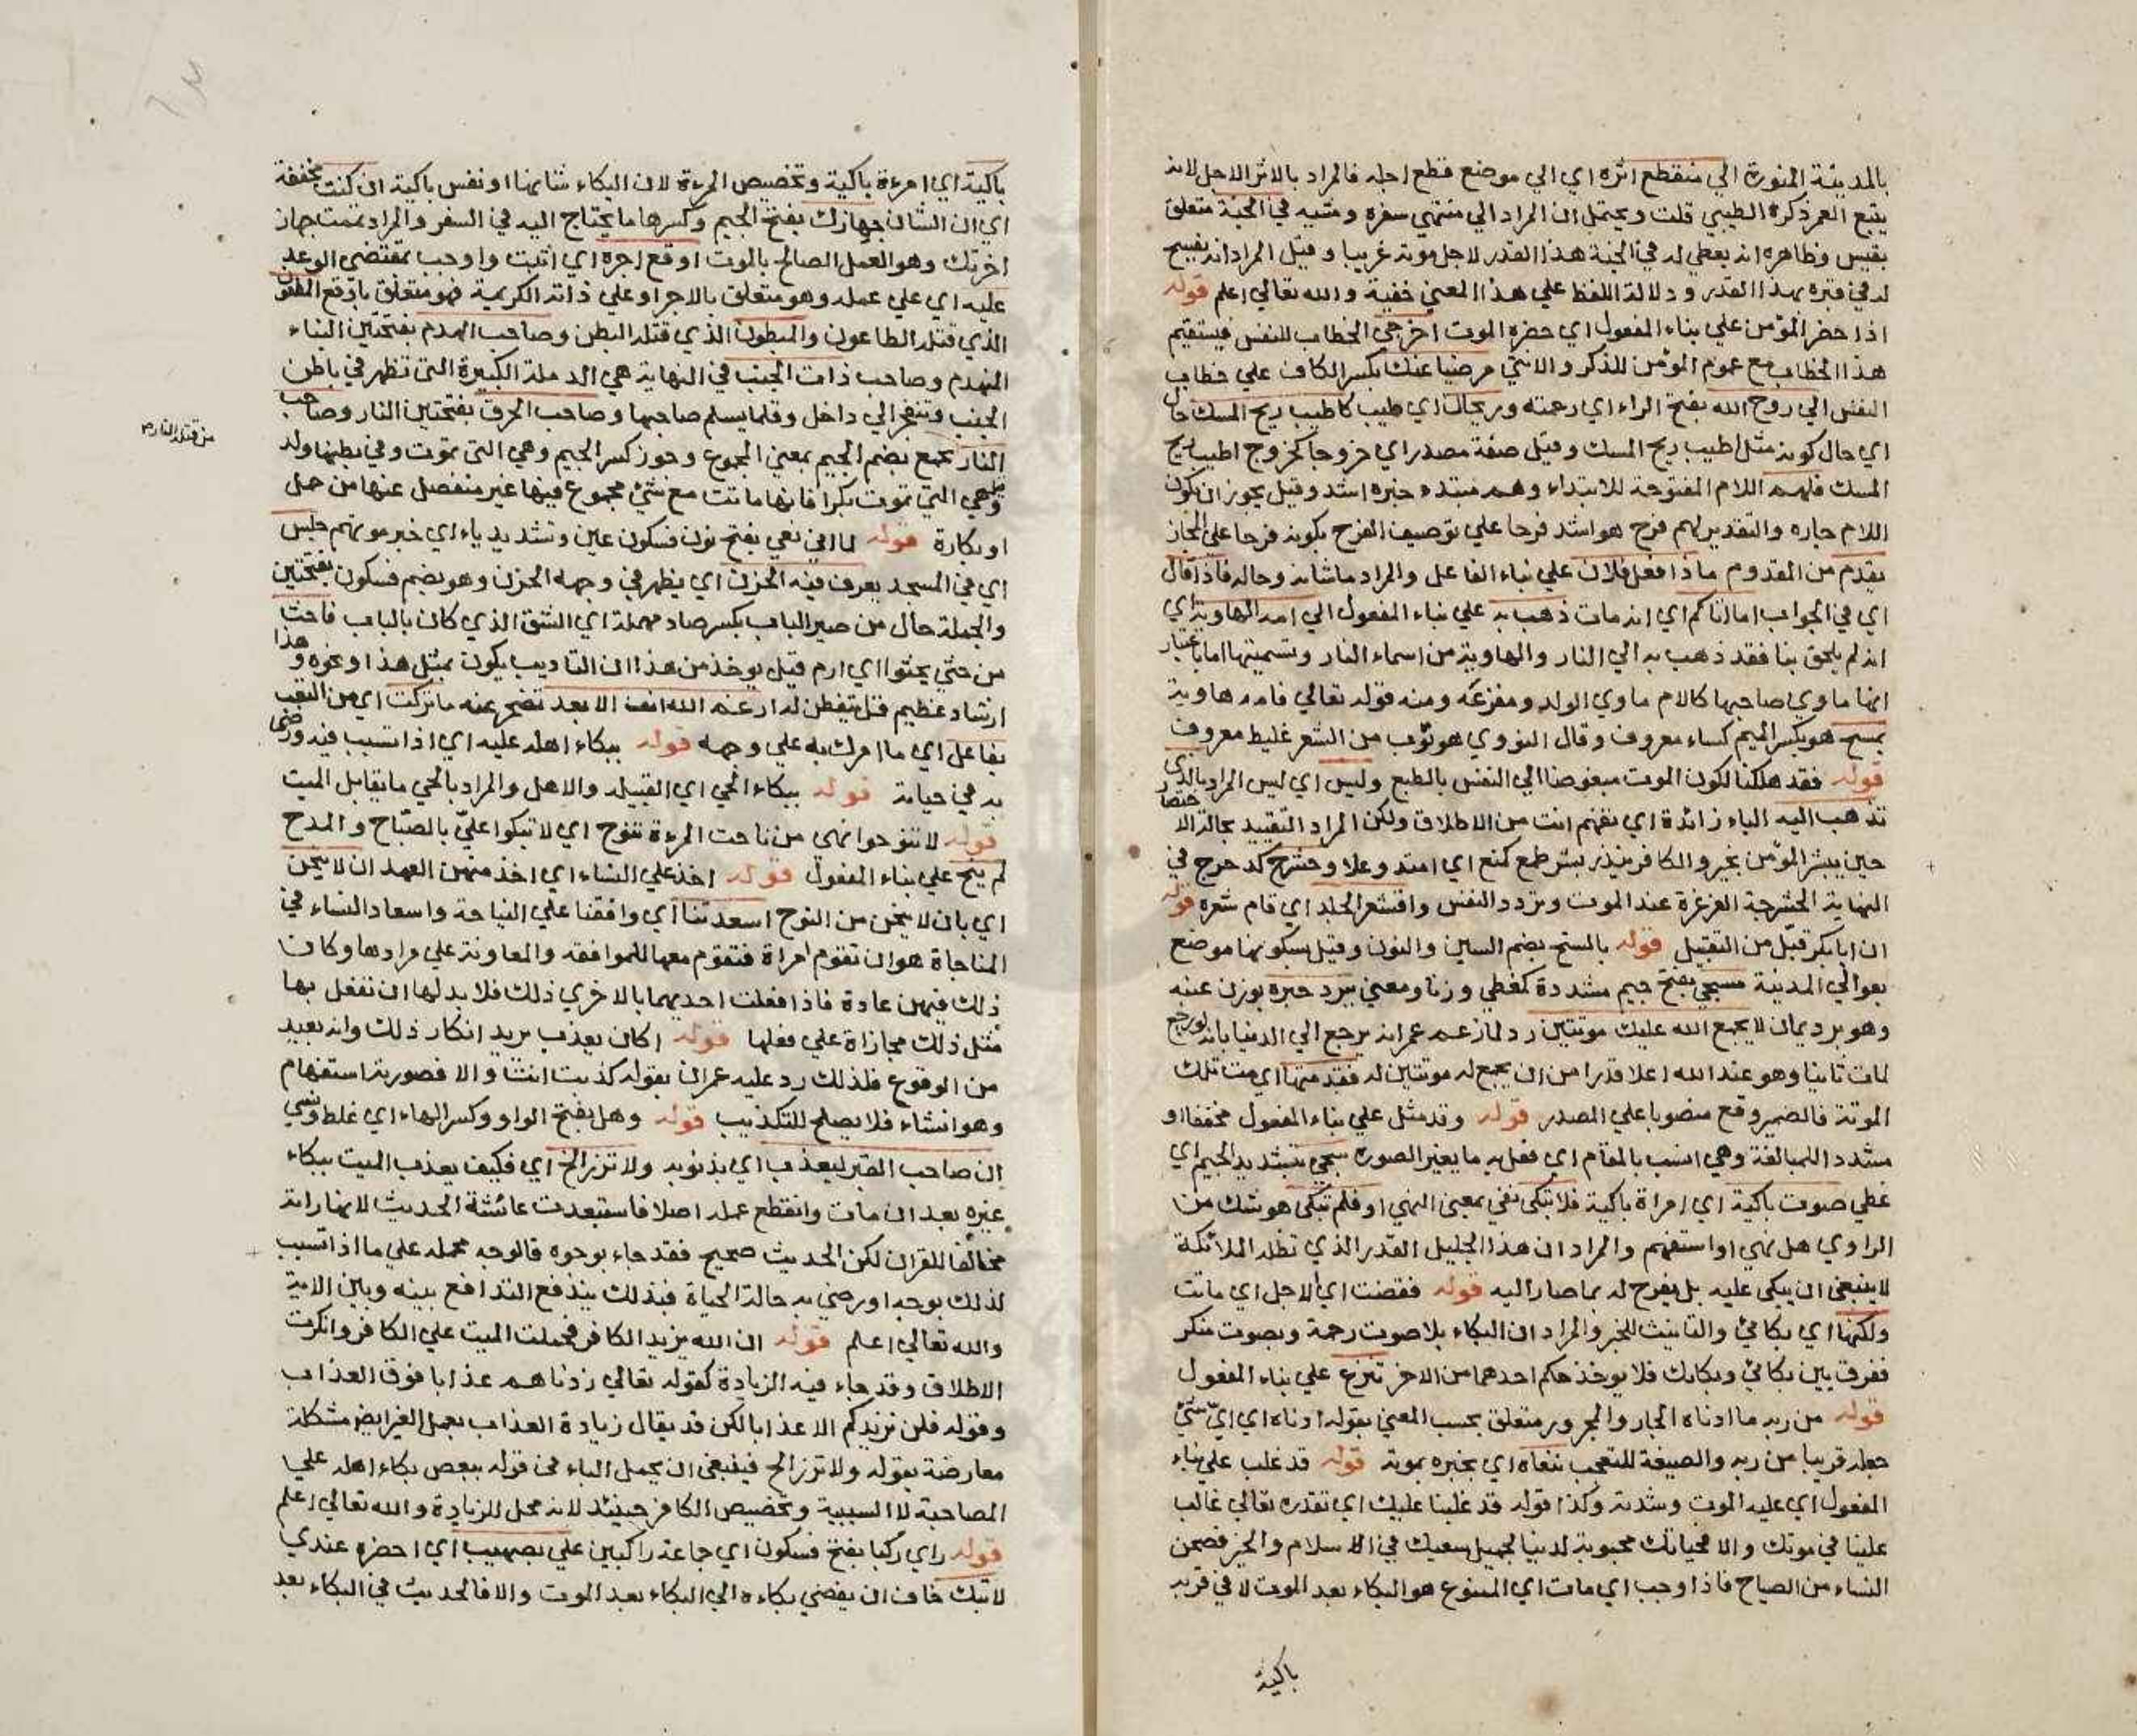 بالمدينة المنورة الي منقطع اثره اي الي موضع قطع اجله فالمراد بالاثر الاجل لانه
يتبع العمر ذكره الطيبي قلت ويحتمل ان المراد الي منتهي سفره ومشيه في الجنة متعلق
بقيس وظاهره انه يعطي له في الجنة هذا القدر لاجل موته غريبا وقيل المراد انه يفسح
له في قبره بهذا القدر ودلالة اللفظ علي هذا المعني خفية والله تعالي اعلم قوله
اذا حضر المؤمن علي بناء المفعول اي حضره الموت اخرجي الخطاب للنفس فيستقيم
هذا الخطاب مع عموم المؤمن للذكر والانثي مرضيا عنك بكسر الكاف علي خطاب
النفس الي روح الله بفتح الراء اي رحمته وريحان اي طيب كاطيب ريح المسك حال
اي حال كونه مثل اطيب ريح المسك وقيل صفة مصدر اي خروجا كخروج اطيب ريح
المسك فلهم اللام المفتوحة للابتداء وهم مبتدء خبره اشد وقيل يجوز ان يكون
اللام جاره والتقدير لهم فرح هو اشد فرحا علي توصيف الفرح بكونه فرحا علي المجاز
يقدم من القدوم ماذا فعل فلان علي بناء الفاعل والمراد ما شانه وحاله فاذا قال
اي في الجواب اما اتاكم اي انه مات ذهب به علي بناء المفعول الي امه الهاوية اي
انه لم يلحق بنا فقد ذهب به الي النار والهاوية من اسماء النار وتسميتها اما باعتبار
انها ماوي صاحبها كالام ماوي الولد ومفزعه ومنه قوله تعالي فامه هاوية
بمسح هو بكسر الميم كساء معروف وقال النووي هو ثوب من الشعر غليط معروف
قوله فقد هلكنا لكون الموت مبغوضا الي النفس بالطبع وليس اي ليس المراد بالذي
تذهب اليه الباء زائدة اي تفهم انت من الاطلاق ولكن المراد التقييد بحالة الاحتضار
حين يبشر المؤمن بخير والكافر ينذر بشر طمح كمنع اي امتد وعلا وحشرج كدحرج في
النهاية الحشرجة الغرغرة عند الموت وتردد النفس واقشعر الجلد اي قام شعره قوله
ان ابا بكر قبّل من التقبيل قوله بالسنح بضم السين والنون وقيل بسكونها موضع
بعوالي المدينة مسجي بفتح جيم مشددة كمغطي وزنا ومعني ببرد حبرة بوزن عنبه
وهو برد يمان لا يجمع الله عليك موتتين رد لما زعم عمر انه يرجع الي الدنيا بانه لو رجع
لمات ثانيا وهو عند الله اعلا قدرا من ان يجمع له موتتين له فقد متها اي مت تلك
الموتة فالضمير وقع منصوبا علي المصدر قوله وقد مثل علي بناء المفعول مخففا او
مشددا للمبالغة وهي انسب بالمقام اي فعل به ما يغير الصورة سجي بتشديد الجيم اي
غطي صوت باكية اي امراة باكية فلا تبكي نفي بمعني النهي او فلم تبكي هو شك من
الراوي هل نهي او استفهم والمراد ان هذا الجليل القدر الذي تظله الملائكة
لا ينبغي ان يبكي عليه بل يفرح له بما صار اليه قوله فقضت اي الاجل اي ماتت
ولكنها اي بكائي والتانيث للخبر والمراد ان البكاء بلا صوت رحمة وبصوت منكر
ففرق بين بكائي وبكائك فلا يوخذ حكم احدهما من الاخر تنزع علي بناء المفعول
قوله من ربه ما ادناه الجار والمجرور متعلق بحسب المعني بقوله ادناه اي اي شئ
جعله قريبا من ربه والصيغة للتعجب ننعاه اي نخبره بموته قوله قد غلب علي بناء
المفعول اي عليه الموت وشدته وكذا قوله قد غلبنا عليك اي تقدره تعالي غالب
علينا في موتك والا فحياتك محبوبة لدينا لجميل سعيك في الاسلام والخير فصحن
النساء من الصياح فاذا وجب اي مات اي الممنوع هو البكاء بعد الموت لا في قربه
باكية
باكية اي امرءة باكية وتخصيص المرءة لان البكاء شانها او نفس باكية ان كنت مخففة
اي ان الشان جهازك بفتح الجيم وكسرها ما يحتاج اليه في السفر والمراد تممت جهاز
اخرتك وهو العمل الصالح بالموت اوقع اجره اي اثبت واوجب بمقتضي الوعد
عليه اي علي عمله وهو متعلق بالاجر او علي ذاته الكريمة فهو متعلق باوقع المطعون
الذي قتله الطاعون والمبطون الذي قتله البطن وصاحب الهدم بفتحتين البناء
المنهدم وصاحب ذات الجنب في النهاية هي الدملة الكبيرة التي تظهر في باطن
الجنب وتنفجر الي داخل وقلما يسلم صاحبها وصاحب الحرق بفتحتين النار وصاحب
من قتله النار م
النار بجمع بضم الجيم بمعني المجموع وجوز كسر الجيم وهي التي تموت وفي بطنها ولد
وقيل هي التي تموت بكرا فانها ماتت مع شئ مجموع فيها غير منفصل عنها من حمل
او بكارة قوله لما اتي نعي بفتح نون فسكون عين وتشديد ياء اي خبر موتهم جلس
اي في المسجد يعرف فيه الحزن اي يظهر في وجهه الحزن وهو بضم فسكون بفتحتين
والجملة حال من صير الباب بكسر صاد مهملة اي الشق الذي كان بالباب فاحث
من حثي يحثوا اي ارم قيل يوخذ من هذا ان التاديب يكون بمثل هذا او نحوه وهذا
ارشاد عظيم قل يتفطن له ارغم الله انف الابعد تضجر عنه ما تركت اي من التعب
بفاعل اي ما امرك به علي وجهه قوله ببكاء اهله عليه اي اذا تسبب فيه ورضي
به في حياته قوله ببكاء الحي اي القبيله والاهل والمراد بالحي ما يقابل الميت
قوله لا تنوحوا نهي من ناحت المرءة تنوح اي لا تبكوا عليّ بالصّياح والمدح
لم ينح علي بناء المفعول قوله اخذ علي النساء اي اخذ منهن العهد ان لا ينحن
اي بان لا ينحن من النوح اسعدتنا اي وافقنا علي النياحة واسعاد النساء في
المناحاة هو ان تقوم امراة فتقوم معها للموافقه والمعاونة علي مرادها وكان
ذلك فيهن عادة فاذا فعلت احديهما بالاخري ذلك فلا بد لها ان تفعل بها
مثل ذلك مجازاة علي فعلها قوله اكان يعذب يريد انكار ذلك وانه بعيد
من الوقوع فلذلك رد عليه عمران بقوله كذبت انت والا فصورية استفهام
وهو انشاء فلا يصلح للتكذيب قوله وهل بفتح الواو وكسر الهاء اي غلط ونسي
ان صاحب القبر ليعذب اي بذنوبه ولا تزر الخ اي فكيف يعذب الميت ببكاء
غيره بعد ان مات وانقطع عمله اصلا فاستبعدت عائشة الحديث لانها راته
مخالفا للقران لكن الحديث صحيح فقد جاء بوجوه فالوجه حمله علي ما اذا تسبب
لذلك بوجه او رضي به حالة الحياة فبذلك يندفع التدافع بينه وبين الاية
والله تعالي اعلم قوله ان الله يزيد الكافر فحملت الميت علي الكافر وانكرت
الاطلاق وقد جاء فيه الزيادة كقوله تعالي زدناهم عذابا فوق العذاب
وقوله فلن نزيدكم الا عذابا لكن قد يقال زيادة العذاب بعمل الغير ايضا مشكلة
معارضة بقوله ولا تزر الخ فينبغي ان يحمل الباء في قوله ببعض بكاء اهله علي
المصاحبة لا السببية وتخصيص الكافر حينئذ لانه محل للزيادة والله تعالي اعلم
قوله راي ركبا بفتح فسكون اي جماعة راكبين علي بصهيب اي احضره عندي
لا تبك خاف ان يفضي بكاءه الي البكاء بعد الموت والا فالحديث في البكاء بعد